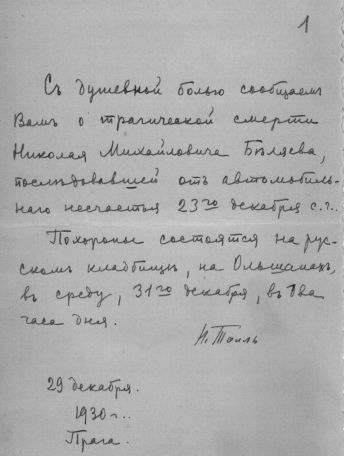 1
Съ душевной болью сообщаемъ
Вамъ о трагической смерти
Николая Михайловича Бѣляева,
послѣдовавшей отъ автомобиль-
наго несчастья 23го декабря с.г..
Похороны состоятся на рус-
скомъ кладбищѣ, на Ольшанахъ,
въ среду, 31го декабря, въ два
часа дня.
Н. Толль
29 декабря.
1930 г..
Прага.